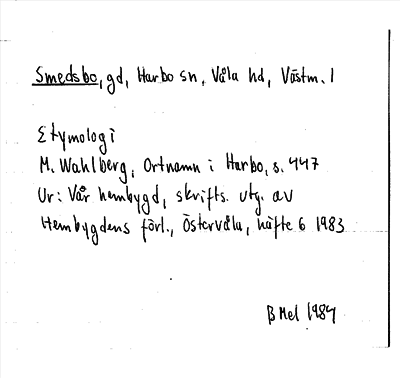 Smedsbo, gd, Harbo sn, Våla hd, Västm. l
Etymologi
M. Wahlberg, Ortnamn i Harbo, s. 447
Ur: Vår hembygd, skrifts. utg. av
Hembygdens förl., Östervåla, häfte 6 1983
B Mel 1984